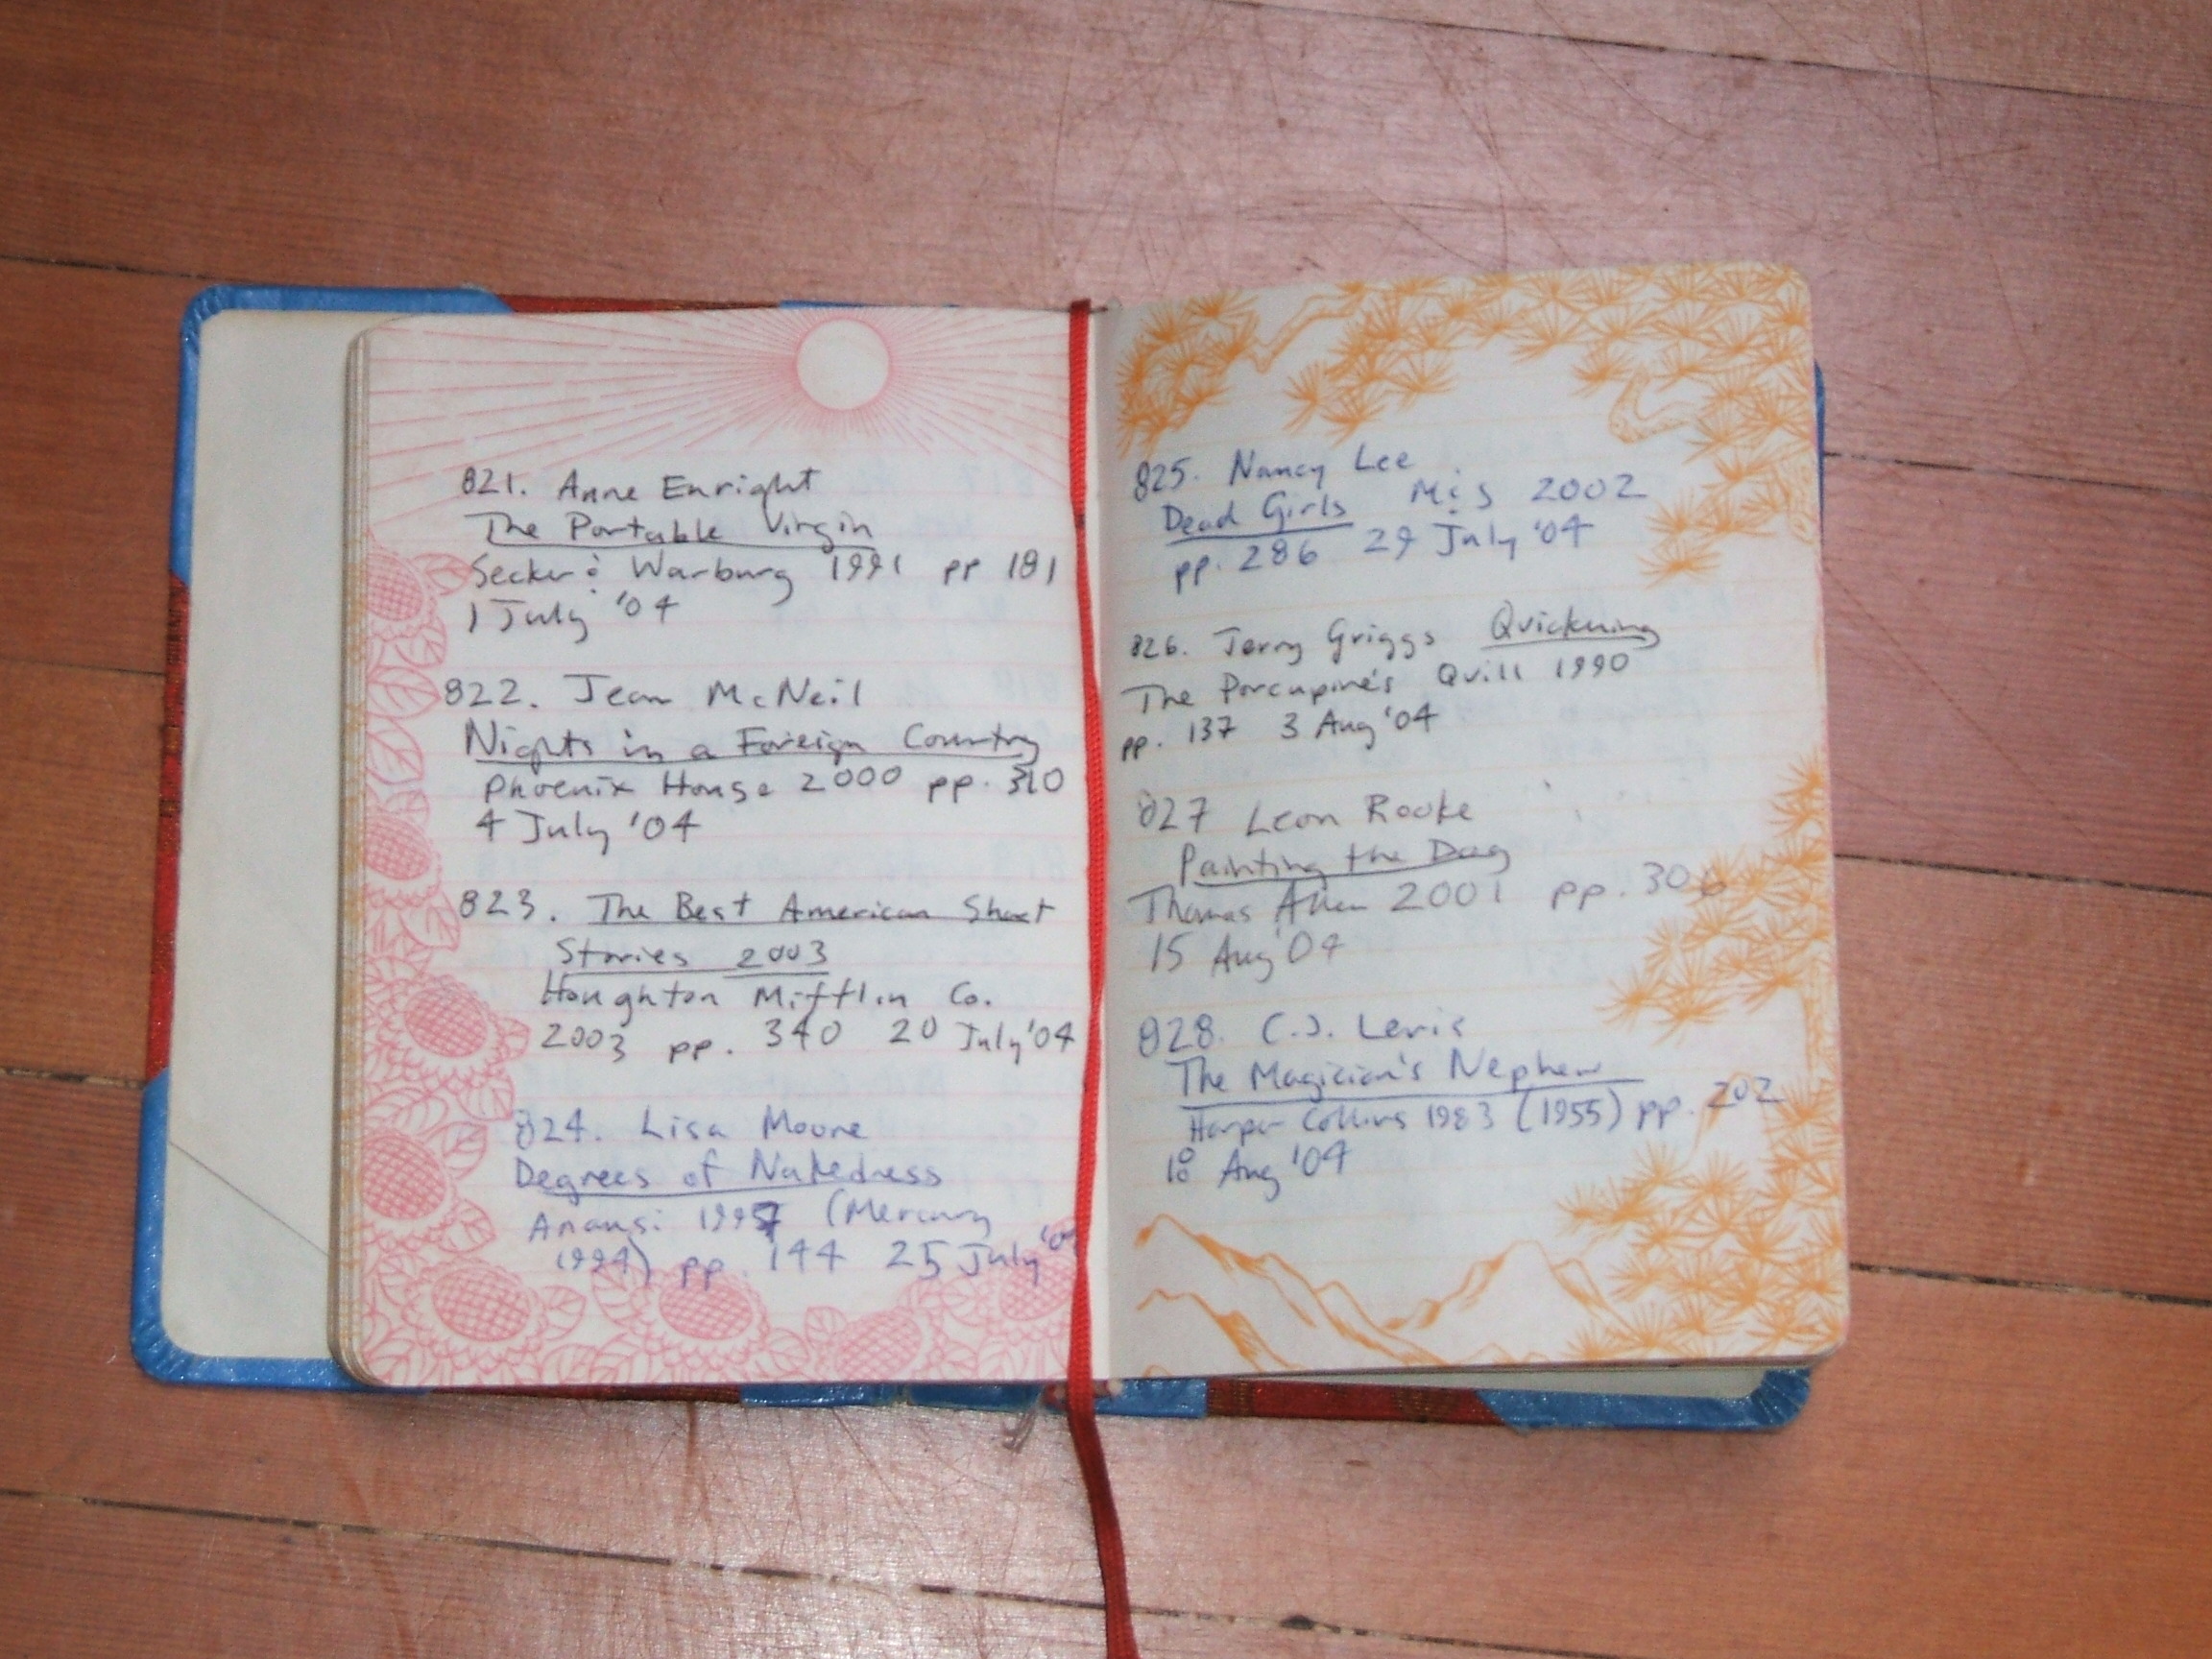 821. Anne Enright
The Portable Virgin
Secker & Warburg 1991 pp 181
1 July '04
822. Jean McNeil
Nights in a Foreign Country
Phoenix House 2000 pp. 310
4 July '04
823. The Best American Short
Stories 2003
Houghton Mifflin Co.
2003 pp. 340 20 July '04
824. Lisa Moore
Degrees of Nakedness
Anansi 1997 (Mercury
1994) pp. 144 25 July '04
825. Nancy Lee
Dead Girls M&S 2002
pp. 286 29 July '04
826. Terry Griggs Quickening
The Porcupine's Quill 1990
pp. 137 3 Aug '04
827 Leon Rooke
Painting the Dog
Thomas Allen 2001 pp. 306
15 Aug '04
828. C.S. Lewis
The Magician's Nephew
Harper Collins 1983 (1955) pp. 202
18 Aug '04